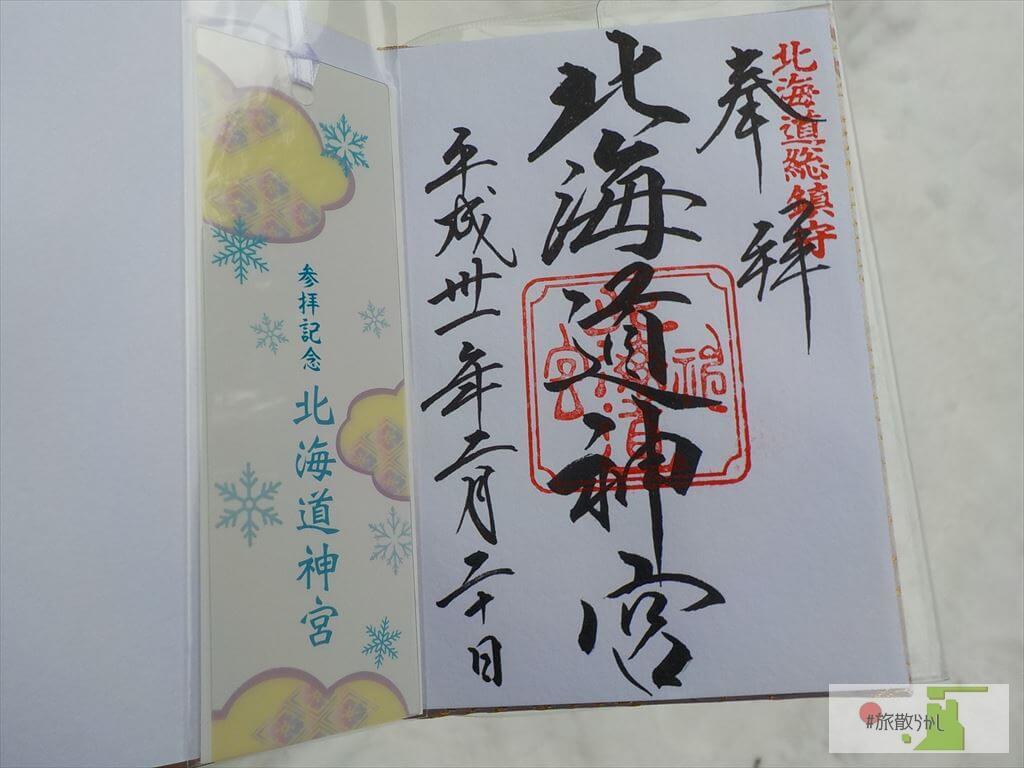 北海道総鎮守
奉拝
北海道神宮
平成卅一年二月二十日
参拝記念
北海道神宮
#旅散らかし